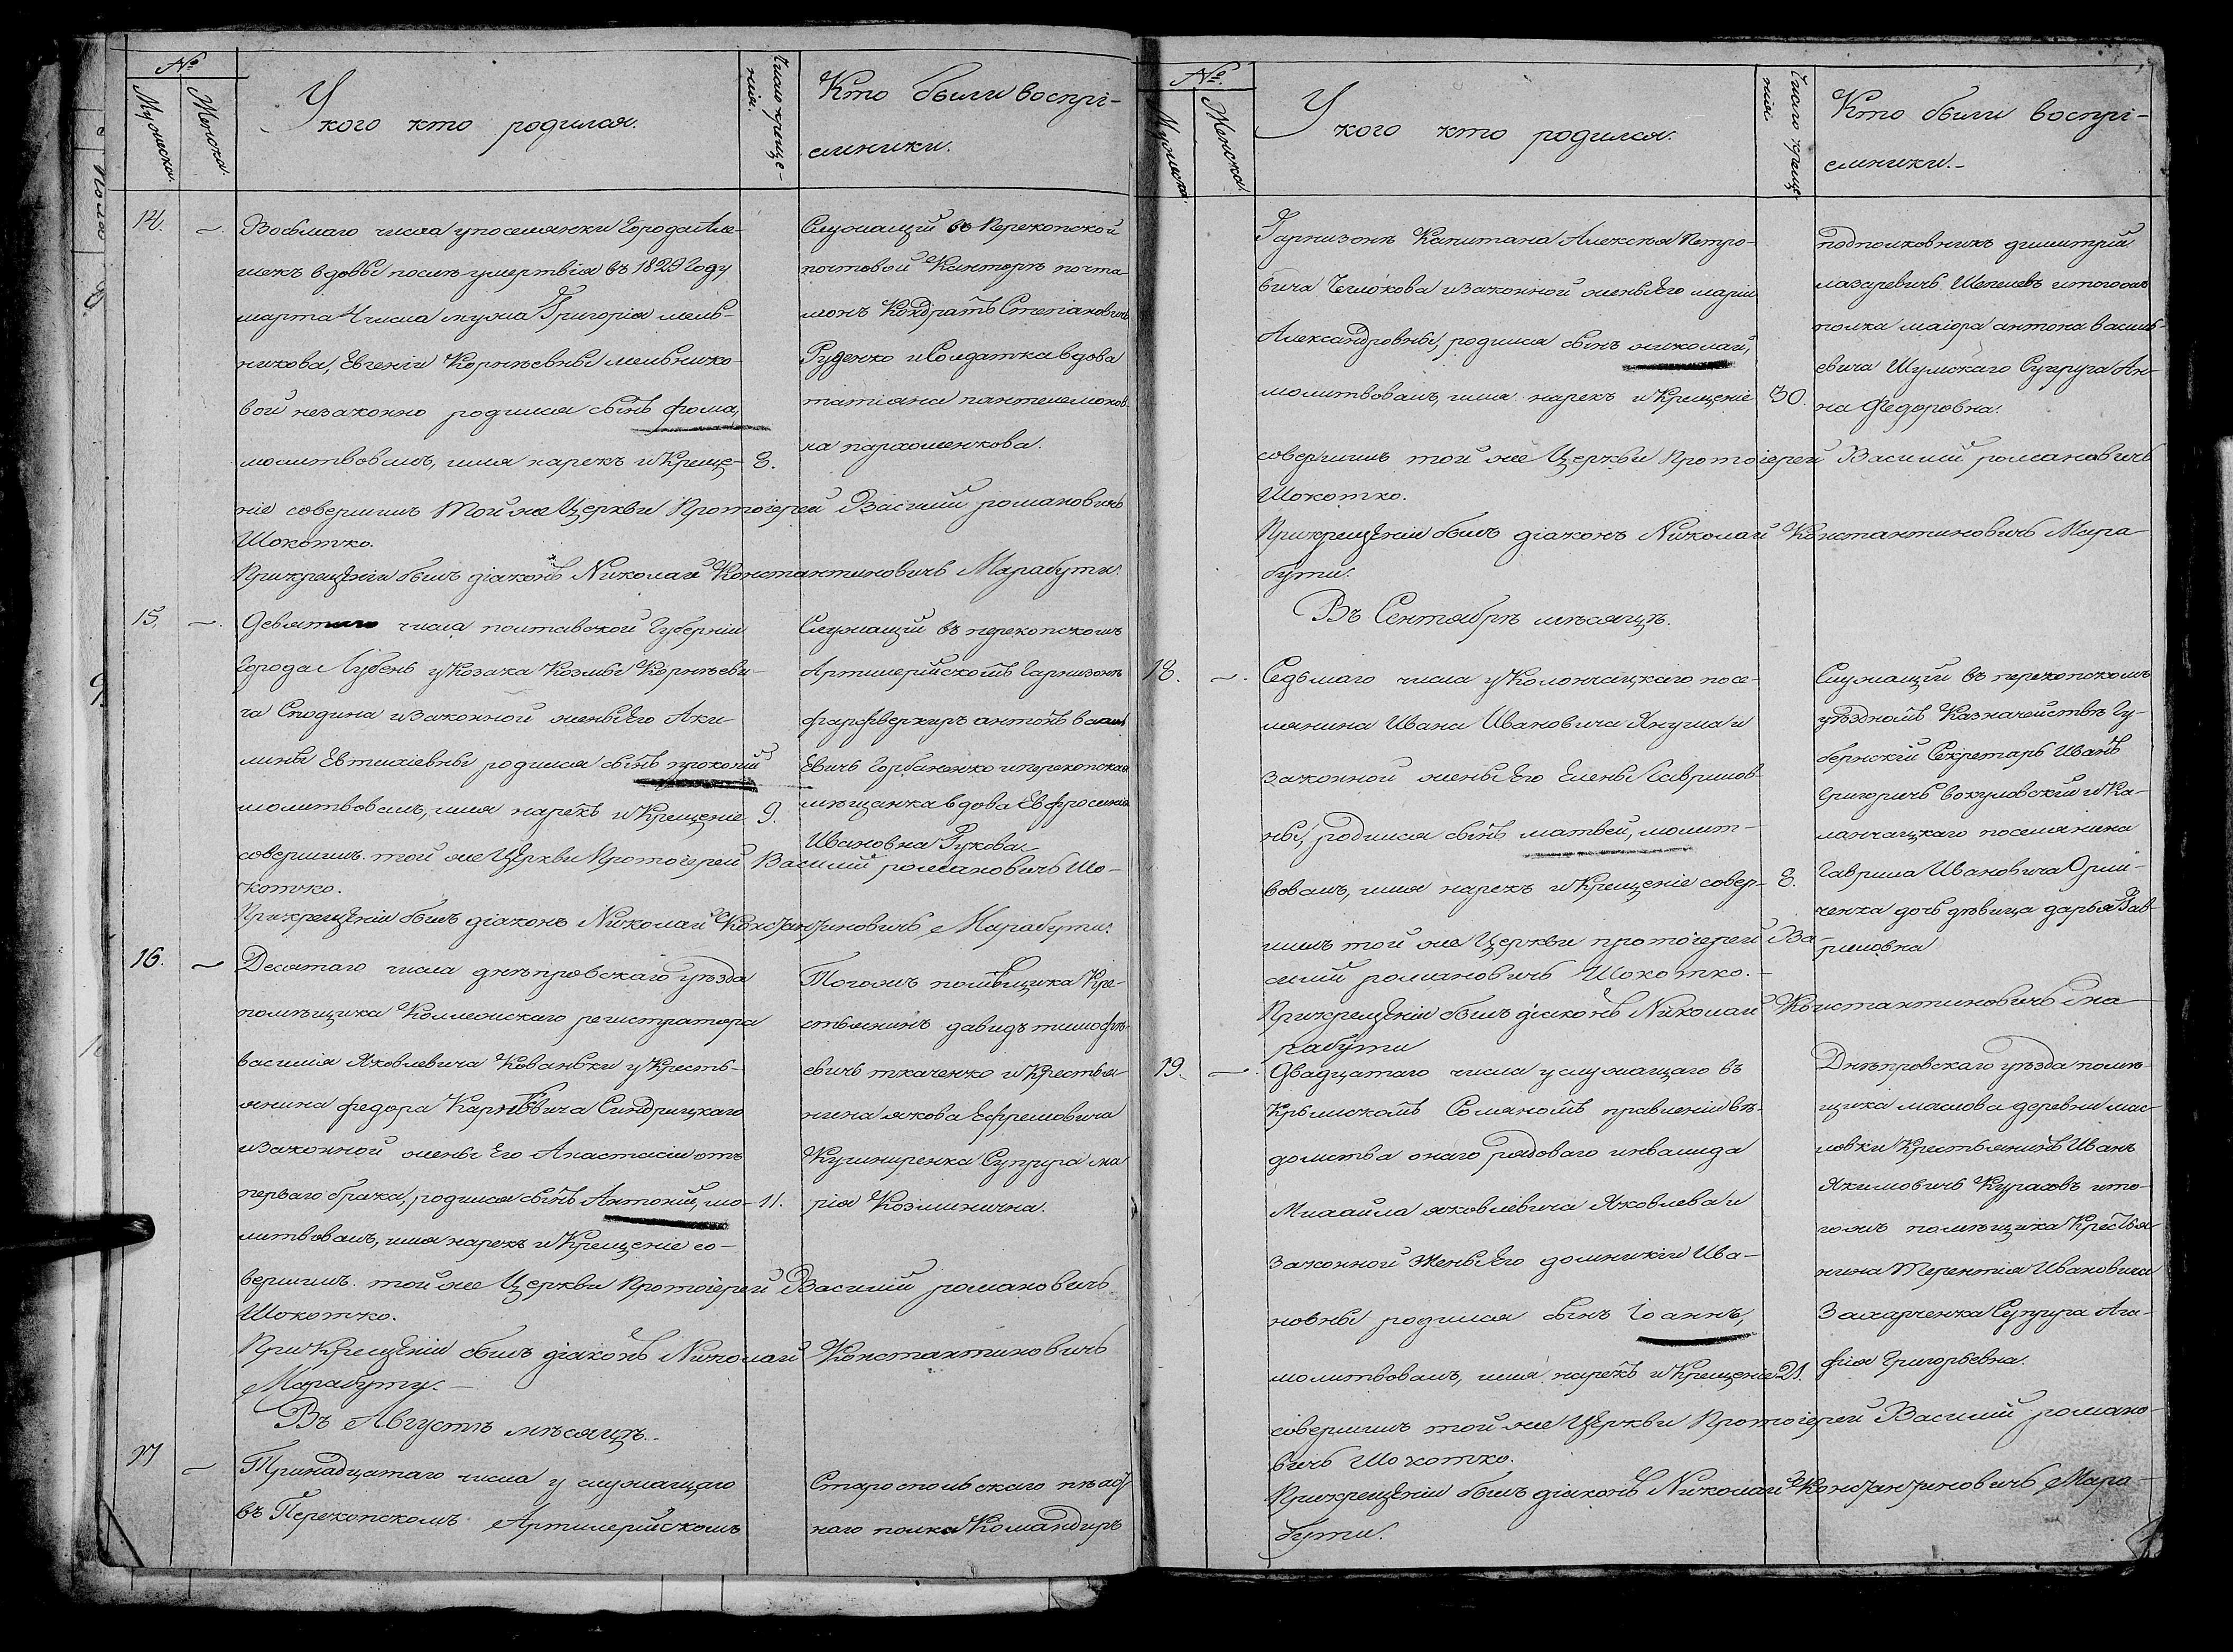 №
Мужеска.
Женска.
У кого кто родился.
Число креще-
нія.
Кто были воспрі-
емники.
14.
Восьмаго числа у поселянки Города Але-
шекъ вдовы после умертвія въ 1829 Году
марта 4 числа мужа Григорія мель-
никова, Евгеніи Корнѣевны мельнико-
вой незаконно родился сынъ фома,
молитвовалъ, имя нарекъ и Креще-
8.
ніе совершилъ той же Церкви Протоіерей Василій романовичь
Шокотко.
При крещеніи былъ діаконъ Николай Константиновичь Марабути.
Служащій въ Перекопской
почтовой Канторѣ почта-
ліонъ Кондратъ Степановичь
Руденко и Солдатка вдова
татіана пантелемонов-
на пархоменкова.
15.
Девятаго числа полтавской Губерніи
Города Лубенъ у Козака Козмы Корнѣеви-
ча Сподина и законной жены Его Аки-
лины Евтихіевны родился сынъ прокопій
молитвовалъ, имя нарекъ и Крещеніе
9.
совершилъ той же Церкви Протоіерей Василій романовичь Шо-
котко.
При крещеніи былъ діаконъ Николай Константиновичь Марабути.
Служащій въ перекопскомъ
Артилерійскомъ Гарнизонѣ
фарфверкиръ антонъ василь-
Евичь Горбаненко и перекопская
мѣщанка вдова Евфросинія
Ивановна Рукова
16.
Десятаго числа днѣпровскаго уѣзда
помѣщика Коллежскаго регистратора
василія Яковлевича Кованьки у Кресть-
янина федора Карнѣевича Синдрицкаго
и законной жены Его Анастасіи отъ
перваго брака, родился сынъ Антоній, мо-
11.
литвовалъ, имя нарекъ и Крещеніе со-
вершилъ той же Церкви Протоіерей Василій романовичь
Шокотко.
При Крещеніи былъ діаконъ Николай Константиновичь
Марабути.
Тогожъ помѣщика Кре-
стьянинъ давидъ тимофѣ-
евичь ткаченко и Крестья-
нина якова Ефремовича
Кушниренка Супруга ма
рія Козминична.
Въ Августѣ мѣсяцѣ.
17
Тринадцатаго числа у служащаго
въ Перекопскомъ Артилерійскомъ
Старооскольскаго пѣхот-
наго полка Командиръ
№.
Мужеска.
Женска.
У кого кто родился.
Число креще
нія
Кто были воспрі-
емники.
Гарнизонѣ Капитана Алексѣя Петро-
вича Чеглокова и законной жены Его маріи
Александровны, родился сынъ николай,
молитвовалъ, имя нарекъ и Крещеніе
30.
совершилъ той же Церкви Протоіерей Василій романовичь
Шокотко.
При крещеніи былъ діаконъ Николай Константиновичь Мара
бути.
подполковникъ димитрій
лазаревичь Шепелевъ и тогожъ
полка маіора антона василь-
евича Шумскаго Супруга Ан-
на Федоровна.
Въ Сентябрѣ мѣсяцѣ.
18.
Седьмаго числа у Колончацкаго посе-
лянина Ивана Ивановича Януша и
законной жены Его Елены Гавриілов-
ны, родился сынъ матвей, молит-
вовалъ, имя нарекъ и Крещеніе совер-
8.
шилъ той же Церкви протоіерей Ва-
силій романовичь Шокотко.
При крещеніи былъ діаконъ Николай Константиновичь ма
рабути
Служащій въ перекопскомъ
уѣздномъ Казначействѣ Гу-
бернскій Секретарь Иванъ
Григоричь вокуловскій и Ка-
ланчацкаго поселянина
Гавриіла Ивановича Орли-
ченка дочь дѣвица дарья Гав-
риловна
19.
Двадцатаго числа у служащаго въ
Крымскомъ Соляномъ правленіи вѣ-
домства онаго рядоваго инвалида
Михаила яковлевича Яковлева и
законной жены Его домникіи Ива-
новны родился сынъ Іоаннъ,
молитвовалъ, имя нарекъ и Крещеніе
21.
совершилъ той же Церкви Протоіерей Василій романо-
вичь Шокотко.
При крещеніи былъ діаконъ Николай Константиновичь Мара-
бути.
Днѣпровскаго уѣзда помѣ-
щика маслова деревни мас-
ловки Крестьянинъ Иванъ
Якимовичь Курасовъ и то-
гожъ помѣщика Крестья-
нина Терентія Ивановича
Захарченка Супруга Ага-
фія Григорьевна.